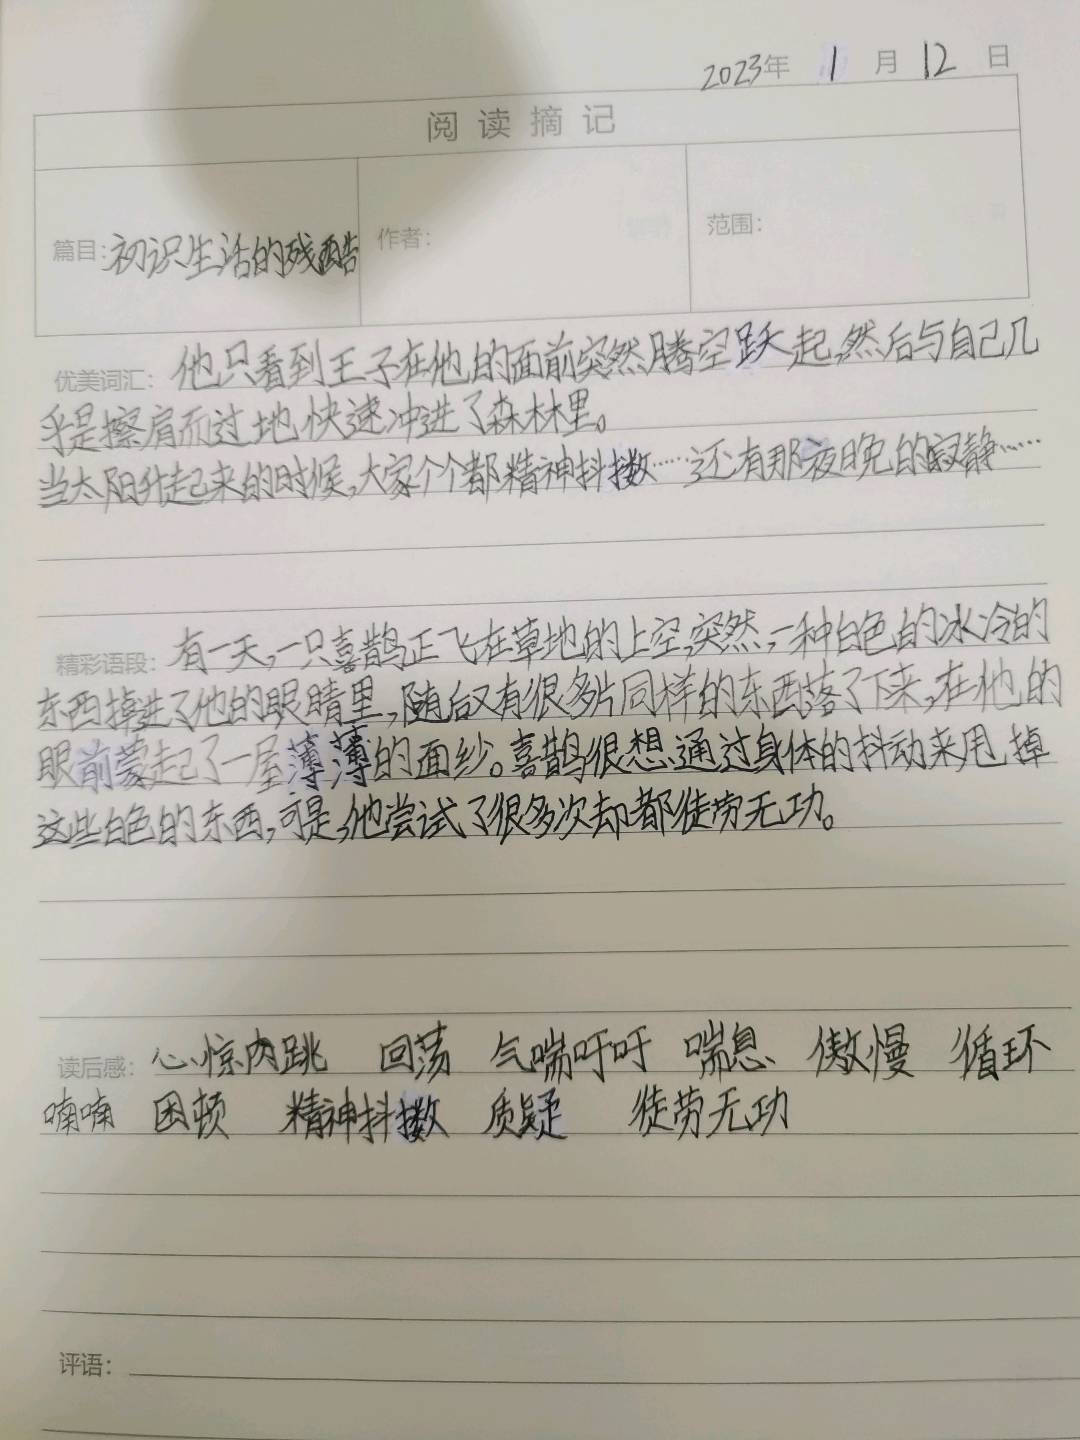 2023年 1 月 12 日
阅读摘记
篇目:初识生活的残酷 作者: 范围:
优美词汇: 他只看到王子在他的面前突然腾空跃起,然后与自己几
乎是擦肩而过地快速冲进了森林里。
当太阳升起来的时候,大家个个都精神抖擞……还有那夜晚的寂静……
精彩语段: 有一天,一只喜鹊正飞在草地的上空,突然,一种白色的冰冷的
东西掉进了他的眼睛里,随后又有很多片同样的东西落了下来,在他的
眼前蒙起了一层薄薄的面纱。喜鹊很想通过身体的抖动来甩掉
这些白色的东西,可是,他尝试了很多次却都徒劳无功。
读后感: 心惊肉跳 回荡 气喘吁吁 喘息 傲慢 循环
喃喃 困顿 精神抖擞 质疑 徒劳无功
评语: